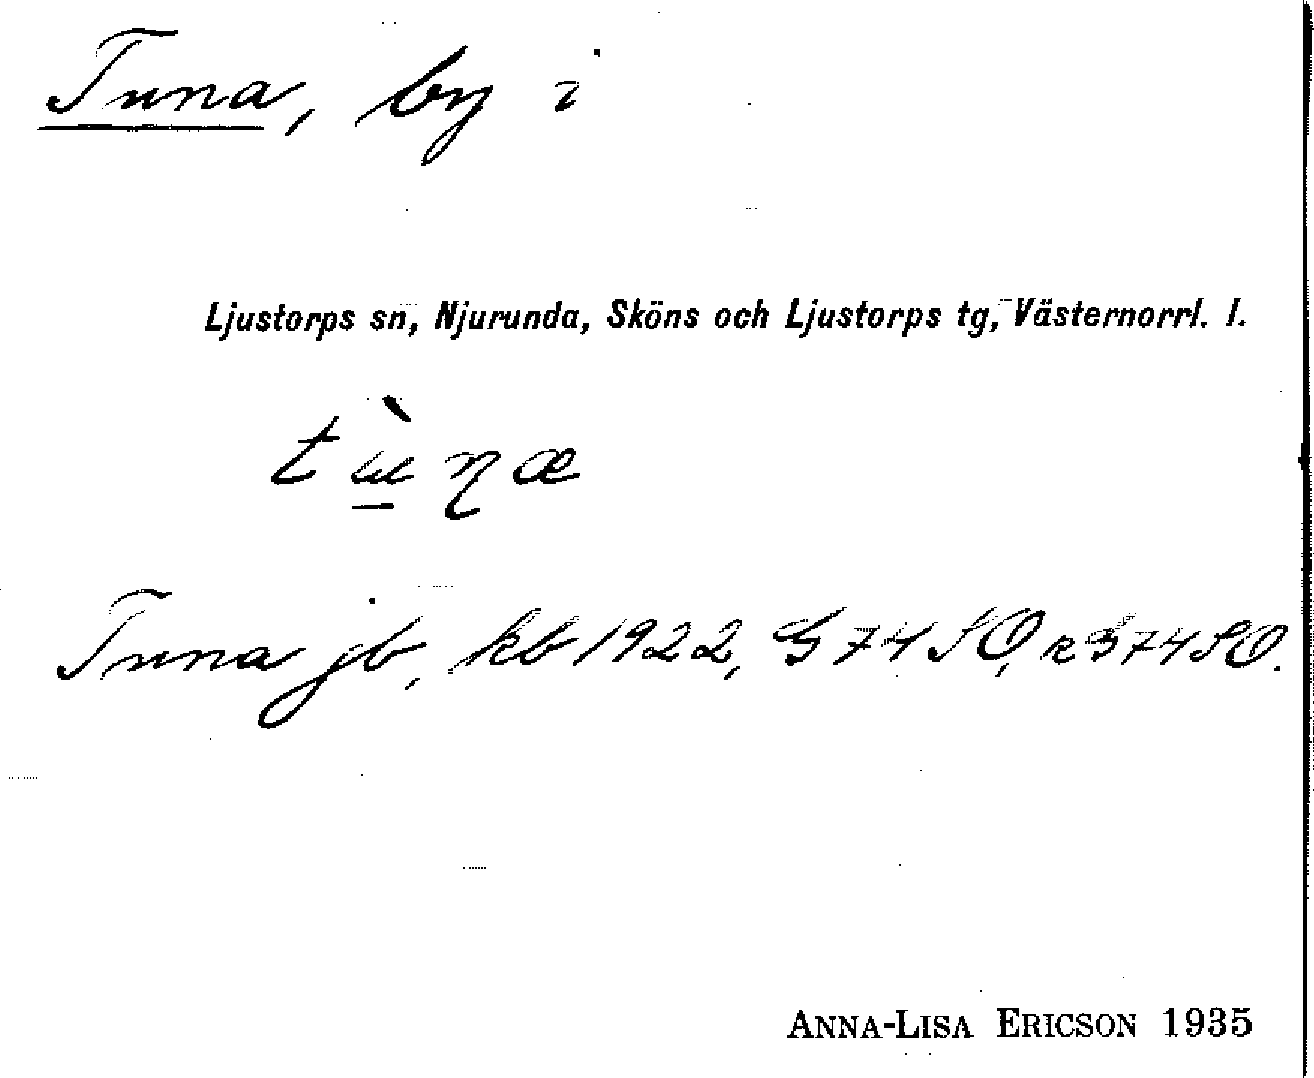 Tuna, by i
Ljustorps sn, Njurunda, Sköns och Ljustorps tg, Västernorrl. l.
Tuna jb, kb 1922, G 74 SO, R G 74 SO.
ANNA-LISA ERICSON 1935